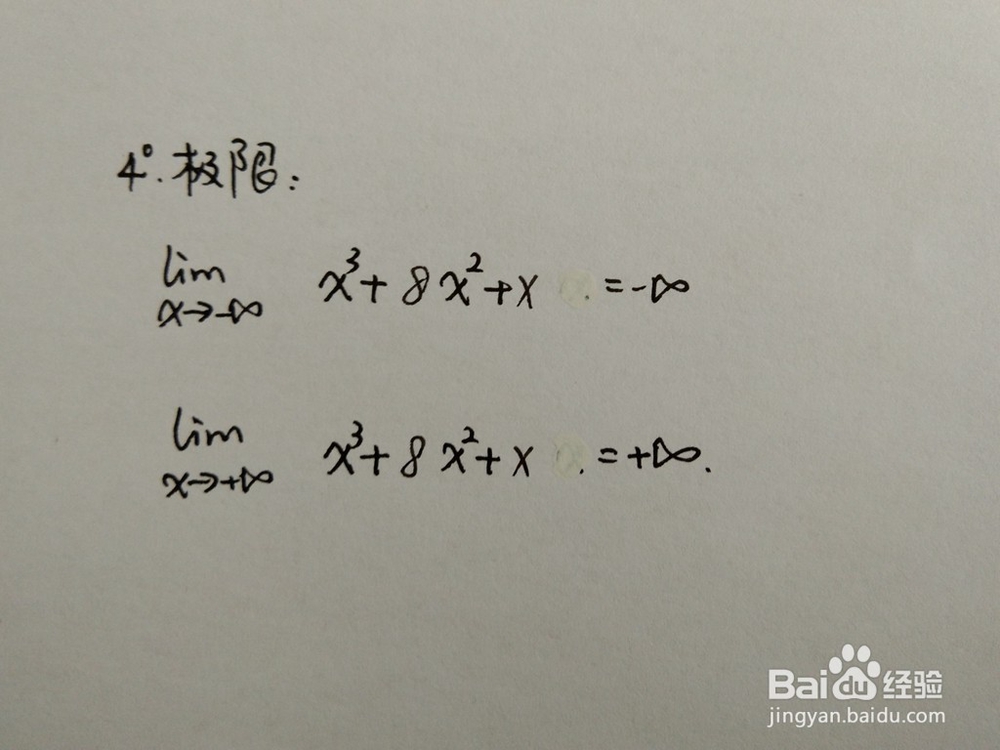 4°. 极限:
lim x³+8x²+x . =-∞
x→-∞
lim x³+8x²+x . =+∞.
x→+∞
Baidu经验
jingyan.baidu.com